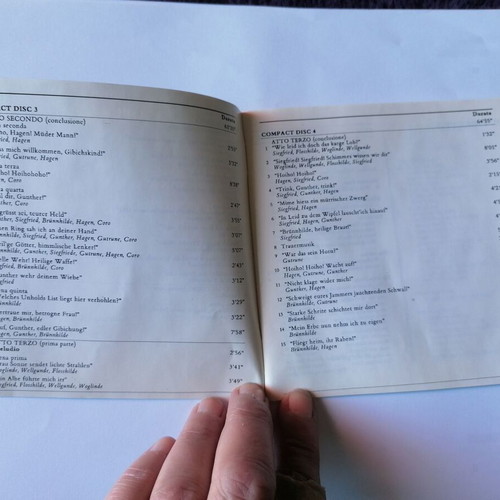 CT DISC 3
Durata
O SECONDO (conclusione)
a seconda
ho, Hagen! Müder Mann!"
fried, Hagen
ss mich willkommen, Gibichskind!"
gfried, Gutrune, Hagen
a terza
ho! Hoihohoho!"
en, Coro
a quarta
l dir, Gunther!"
nther, Coro
grüsst sei, teurer Held"
nther, Siegfried, Brünnhilde, Hagen, Coro
en Ring sah ich an deiner Hand"
nnhilde, Siegfried, Gunther, Hagen, Gutrune, Coro
eil'ge Götter, himmlische Lenker!"
elle Wehr! Heilige Waffe!"
gfried, Brünnhilde, Coro
Gunther wehr deinem Weibe"
gfried
ena quinta
Welches Unholds List liegt hier verhohlen?"
nnhilde
ertraue mir, betrogne Frau!"
agen, Brünnhilde
uf, Gunther, edler Gibichung!"
agen, Gunther, Brünnhilde
TTO TERZO (prima parte)
eludio
ena prima
rau Sonne sendet lichte Strahlen"
oglinde, Wellgunde, Flosshilde
in Albe führte mich irr"
egfried, Flosshilde, Wellgunde, Woglinde
3'29"
5'22"
7'58"
2'56"
3'41"
3'49"
COMPACT DISC 4
Durata
64'59"
ATTO TERZO (conclusione)
1 "Wie leid ich doch das karge Lob?"
Siegfried, Flosshilde, Woglinde, Wellgunde
1'52"
2 "Siegfried! Siegfried! Schlimmes wissen wir dir"
Woglinde, Wellgunde, Flosshilde, Siegfried
3 "Hoiho! Hoiho!"
Hagen, Siegfried, Coro
4 "Trink, Gunther, trink!"
Siegfried, Gunther, Hagen
5 "Mime hiess ein mürrischer Zwerg"
Siegfried, Hagen
6 "In Leid zu dem Wipfel lauscht'ich hinauf"
Siegfried, Hagen, Gunther
7 "Brünnhilde, heilige Braut!"
Siegfried
8 Trauermusik
9 "War das sein Horn?"
Gutrune
10 "Hoiho! Hoiho! Wacht auf!"
Hagen, Gutrune, Gunther
11 "Nicht klage wider mich!"
Gunther, Hagen
12 "Schweigt eures Jammers jauchzenden Schwall"
Brünnhilde, Gutrune
13 "Starke Scheite schichtet mir dort"
Brünnhilde
14 "Mein Erbe nun nehm ich zu eigen"
Brünnhilde
15 "Fliegt heim, ihr Raben!"
Brünnhilde, Hagen